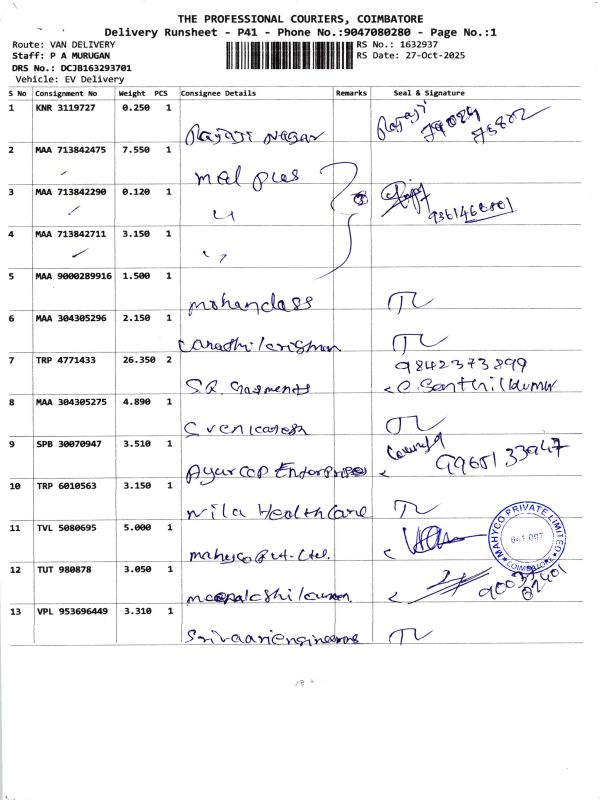 THE PROFESSIONAL COURIERS, COIMBATORE
Delivery Runsheet - P41 - Phone No.:9047080280 - Page No.:1
Route: VAN DELIVERY RS No.: 1632937
Staff: P A MURUGAN RS Date: 27-Oct-2025
DRS No.: DCJB163293701
Vehicle: EV Delivery
S No Consignment No Weight PCS Consignee Details Remarks Seal & Signature
1 KNR 3119727 0.250 1 Rajaji Nagar Rajaji
2 MAA 713842475 7.550 1 mel plus
3 MAA 713842290 0.120 1 " 9361460801
4 MAA 713842711 3.150 1 "
5 MAA 9000289916 1.500 1 mohandass
6 MAA 304305296 2.150 1
7 TRP 4771433 26.350 2 S.R. Garments 9842373899
C. Senthilkumar
8 MAA 304305275 4.890 1 C venkatesh
9 SPB 30070947 3.510 1 Ayur COP Enterprises 9965133947
10 TRP 6010563 3.150 1 Nila Healthcare
11 TVL 5080695 5.000 1 mahyco Pvt. Ltd. MAHYCO PRIVATE LIMITED
COIMBATORE
12 TUT 980878 3.050 1
13 VPL 953696449 3.310 1 Srivaari engineering